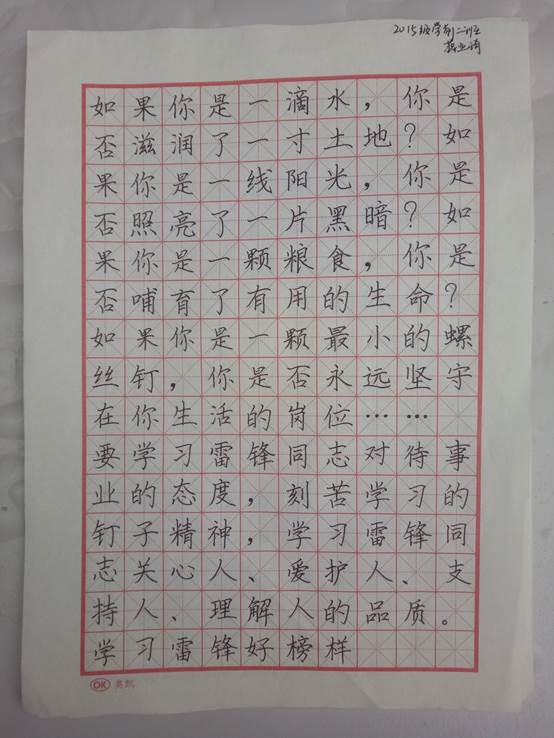 2015级学前二班
如果你是一滴水，你是
否滋润了一寸土地？如
果你是一线阳光，你是
否照亮了一片黑暗？如
果你是一颗粮食，你是
否哺育了有用的生命？
如果你是一颗最小的螺
丝钉，你是否永远坚守
在你生活的岗位……
要学习雷锋同志对待事
业的态度，刻苦学习的
钉子精神，学习雷锋同
志关心人、爱护人、支
持人、理解人的品质。
学习雷锋好榜样
OK 奥凯